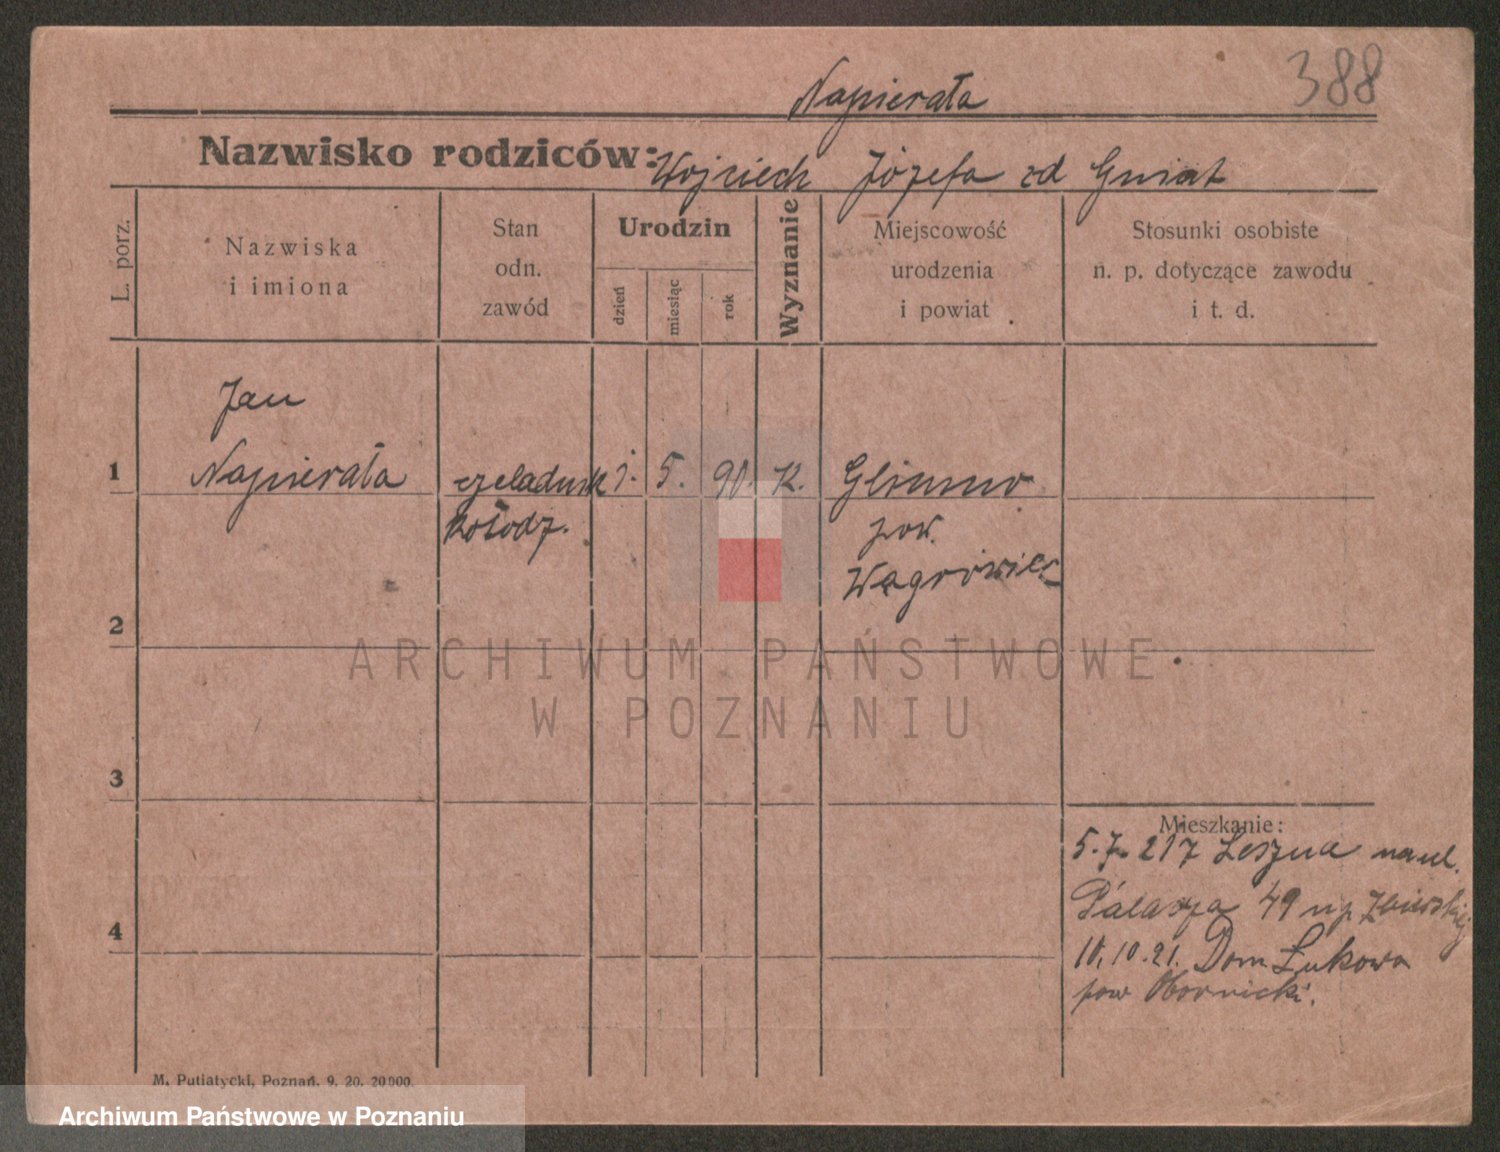 388
Napierała
Nazwisko rodziców: Wojciech Józefa zd Gwiat
L. porz.
Nazwiska
i imiona
Stan
odn.
zawód
Urodzin
dzień
miesiąc
rok
Wyznanie
Miejscowość
urodzenia
i powiat
Stosunki osobiste
n. p. dotyczące zawodu
i t. d.
Jan
1 Napierała czeladnik 1. 5. 90. K. Glinno
kołodz. pow.
Wągrowiec
2
ARCHIWUM PAŃSTWOWE
W POZNANIU
3
Mieszkanie:
5.7.21 z Leszna na ul.
Palacza 49 u p.
4
10.10.21. Dom Łukowo
pow Obornicki.
M. Putiatycki, Poznań. 9. 20. 20000.
Archiwum Państwowe w Poznaniu